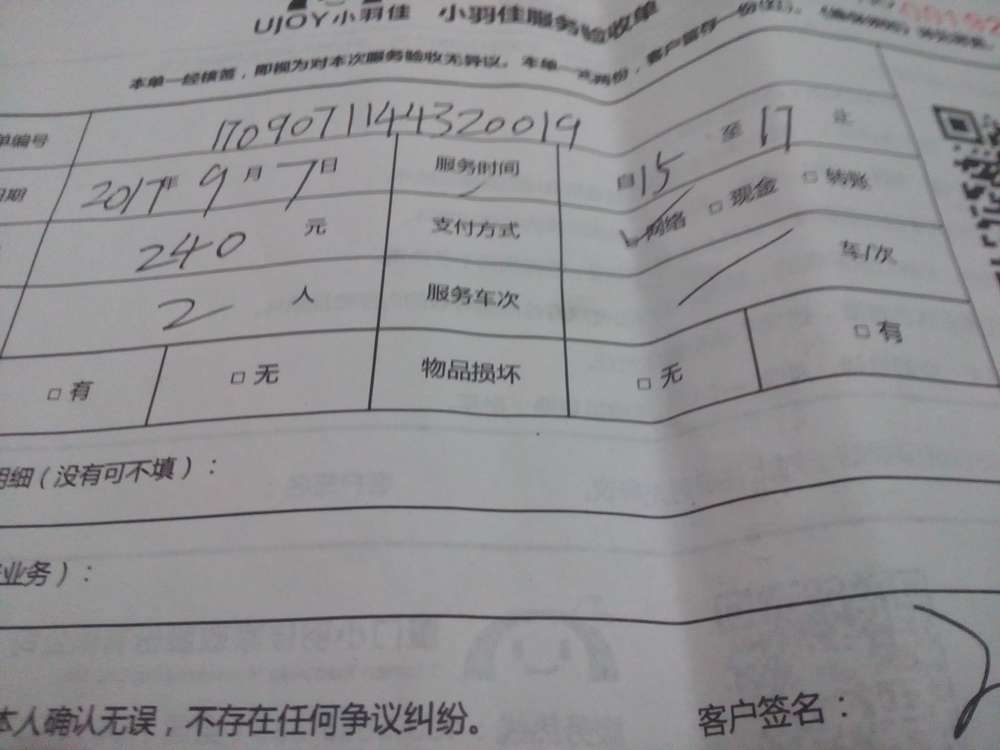 UJOY小羽佳 小羽佳服务验收单
本单一经核签，即视为对本次服务验收无异议。本单一式两份，客户留存一份
单编号 1709071144320019
日期 2017年 9月 7日 服务时间 自15 至17 止
240 元 支付方式 网络 □ 现金 □ 转账
2 人 服务车次 车/次
□ 有 □ 无 物品损坏 □ 无 □ 有
明细（没有可不填）：
业务）：
本人确认无误，不存在任何争议纠纷。 客户签名：